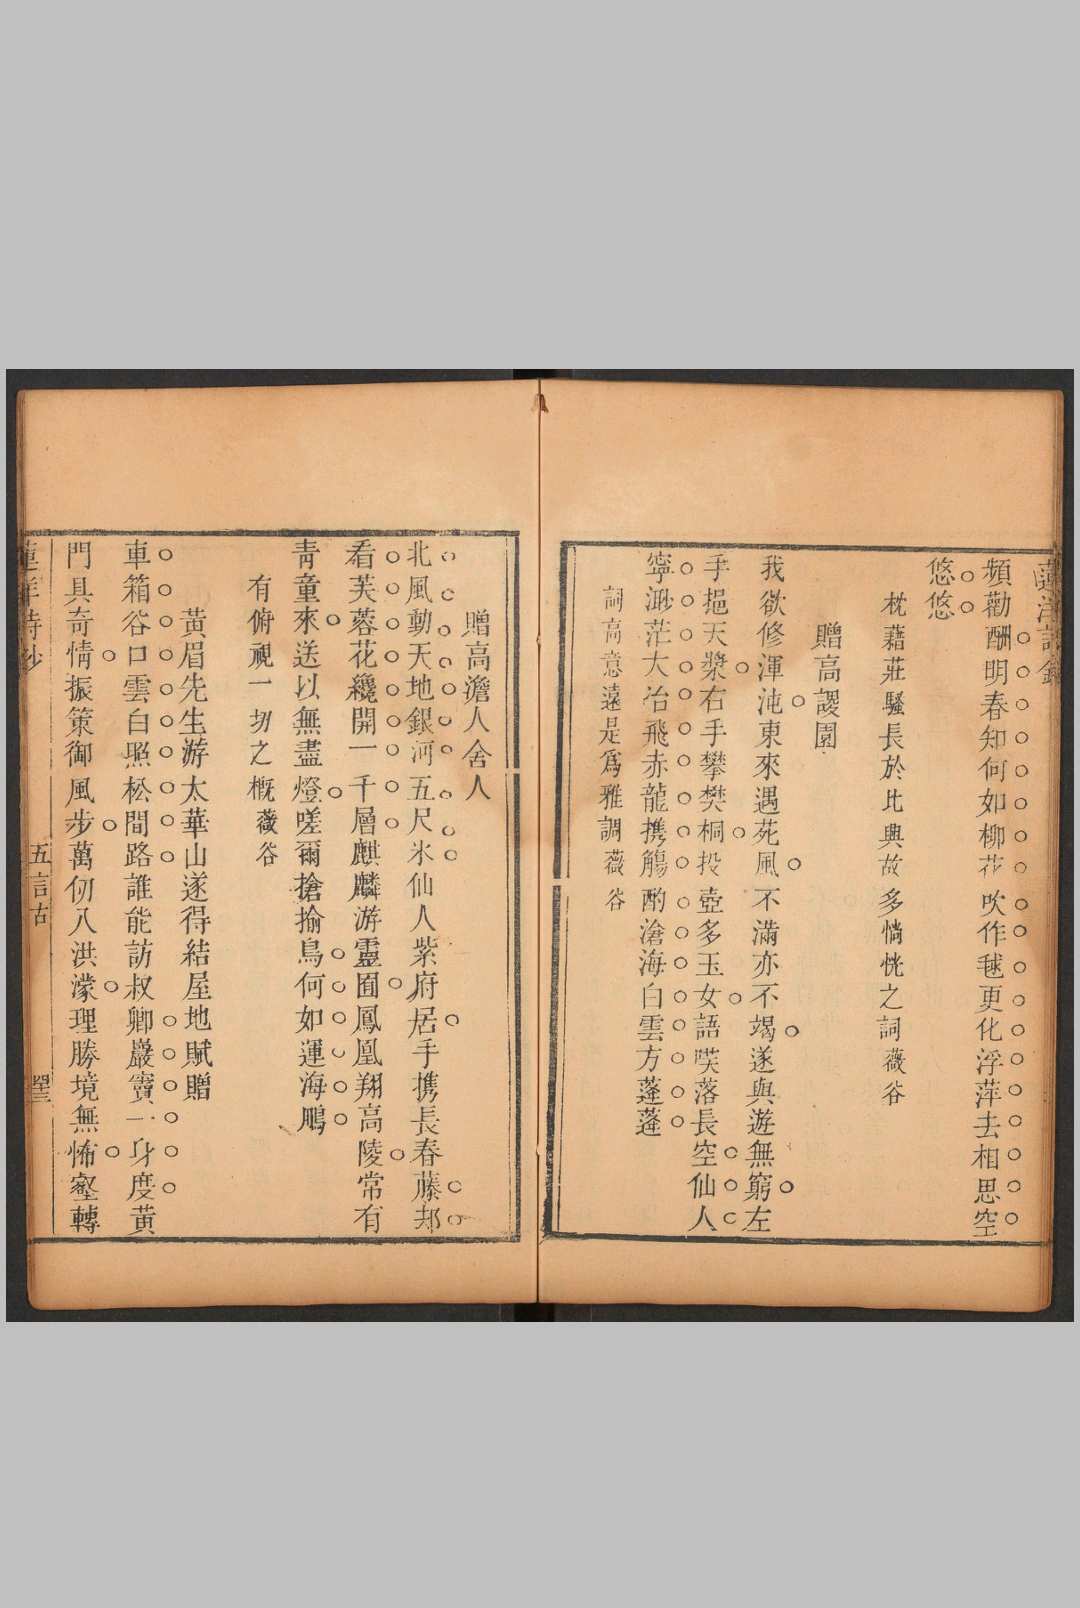 頻勸酬明春知何如柳花吹作毬更化浮萍去相思空
悠悠
枕藉莊騷長於比興故多惝恍之詞薇谷
贈高謖園
我欲修渾沌東來遇苑風不滿亦不竭遂與遊無窮左
手挹天漿右手攀樊桐投壺多玉女語笑落長空仙人
寧渺茫大冶飛赤龍携觴酌滄海白雲方蓬蓬
詞高意遠是爲雅調薇谷
贈高澹人舍人
北風動天地銀河五尺氷仙人紫府居手携長春藤却
看芙蓉花纔開一千層麒麟游靈囿鳳凰翔高陵常有
靑童來送以無盡燈嗟爾搶揄鳥何如運海鵰
有俯視一切之槪薇谷
黃眉先生游太華山遂得結屋地賦贈
車箱谷口雲白照松間路誰能訪叔卿巖竇一身度黃
門具奇情振策御風步萬仞入洪濛理勝境無怖壑轉
蓮洋詩鈔
五言古